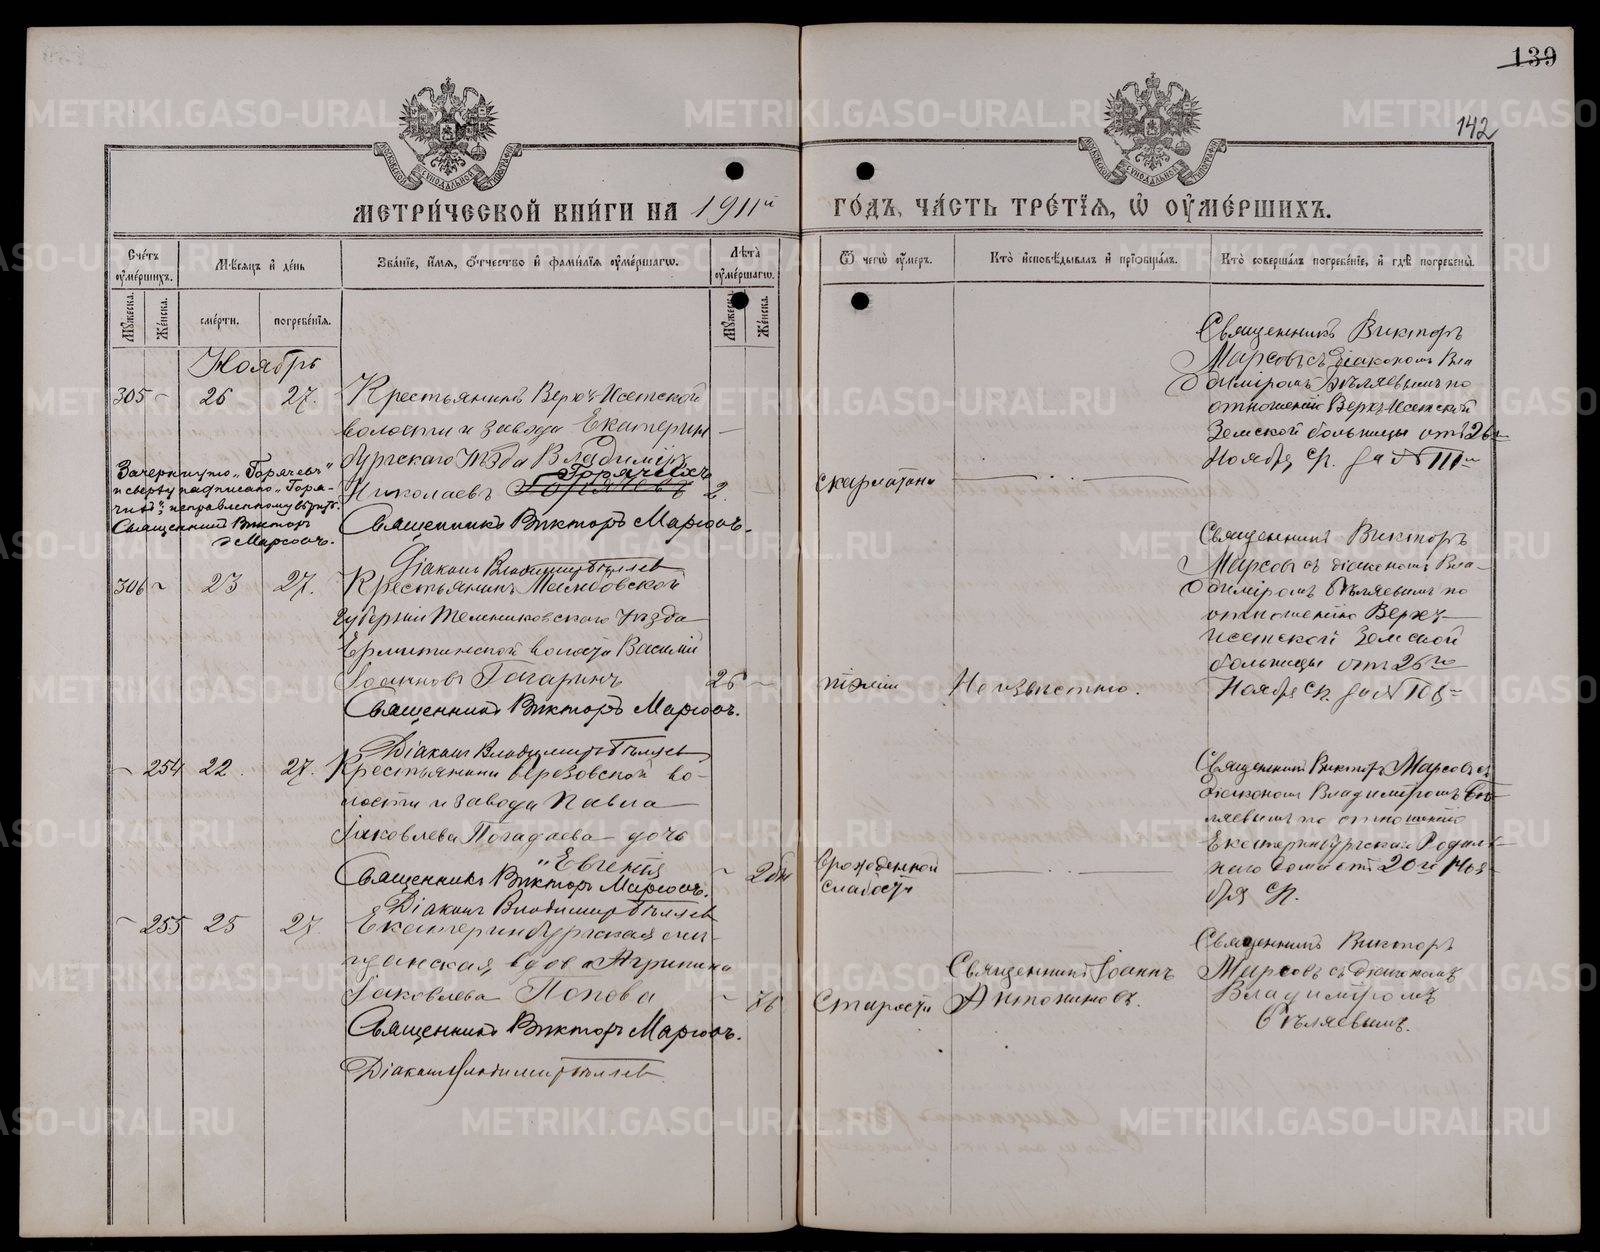 139
142
МЕТРИ́ЧЕСКОЙ КНИ́ГИ НА 1911й ГО́ДЪ, ЧА́СТЬ ТРЕ́ТІѦ, Ѡ ОУ҆МЕ́РШИХЪ.
Сче́тъ оу҆ме́ршихъ.
Мѣ́сяцъ и҆ де́нь
Зва́нїе, и҆́мѧ, ѻ҆́тчество и҆ фами́лїѧ оу҆ме́ршагѡ.
Лѣ́та оу҆ме́ршагѡ.
Ѿ чегѡ̀ оу҆́меръ.
Кто̀ и҆сповѣ́дывалъ и҆ прїѡбща́лъ.
Кто̀ соверша́лъ погребе́нїе, и҆ гдѣ̀ погребены̀.
Му́жеска.
Же́нска.
сме́рти.
погребе́нїѧ.
Му́жеска.
Же́нска.
Ноябрь
305 - 26 27.
Крестьянинъ Верхъ-Исетской
волости и завода Екатерин
бургскаго уѣзда Владиміръ
Горячихъ
Николаевъ
2
Священникъ Викторъ Марсовъ.
Діаконъ Владимиръ Бѣляевъ
Зачеркнуто „Горячевъ"
и сверху надписано „Горя-
чихъ", исправленному вѣрить.
Священникъ Викторъ
Марсовъ.
скарлатина
Священникъ Викторъ
Марсовъ съ діакономъ Вла
диміромъ Бѣляевымъ по
отношенію Верхъ-Исетской
Земской больницы отъ 26го
Ноября с/г. за № 111
306 - 23 27.
Крестьянинъ Тамбовской
губерніи Темниковскаго уѣзда
Ермишинской волости Василій
Іоанновъ Гагаринъ
26 -
Священникъ Викторъ Марсовъ.
Діаконъ Владимиръ Бѣляевъ
піэмии
Неизвѣстно.
Священникъ Викторъ
Марсовъ съ діакономъ Вла-
диміромъ Бѣляевымъ по
отношенію Верхъ-
Исетской Земской
больницы отъ 26го
Ноября с/г. за № 108
- 254 22. 27.
Крестьянина Березовской во-
лости и завода Павла
Іаковлева Погадаева дочь
Евгенія
- 2дн
Священникъ Викторъ Марсовъ.
Діаконъ Владимиръ Бѣляевъ
Врожденной
слабости
Священникъ Викторъ Марсовъ съ
діакономъ Владиміромъ Бѣ-
ляевымъ по отношенію
Екатеринбургскаго Родиль-
наго дома отъ 20го Нояб-
ря с/г.
- 255 25 27.
Екатеринбургская мѣ-
щанская вдова Агрипина
Іаковлева Попова
- 76
Священникъ Викторъ Марсовъ.
Діаконъ Владимиръ Бѣляевъ
Старости
Священникъ Іоаннъ
Антониновъ.
Священникъ Викторъ
Марсовъ съ діакономъ
Владиміромъ
Бѣляевымъ.
METRIKI.GASO-URAL.RU